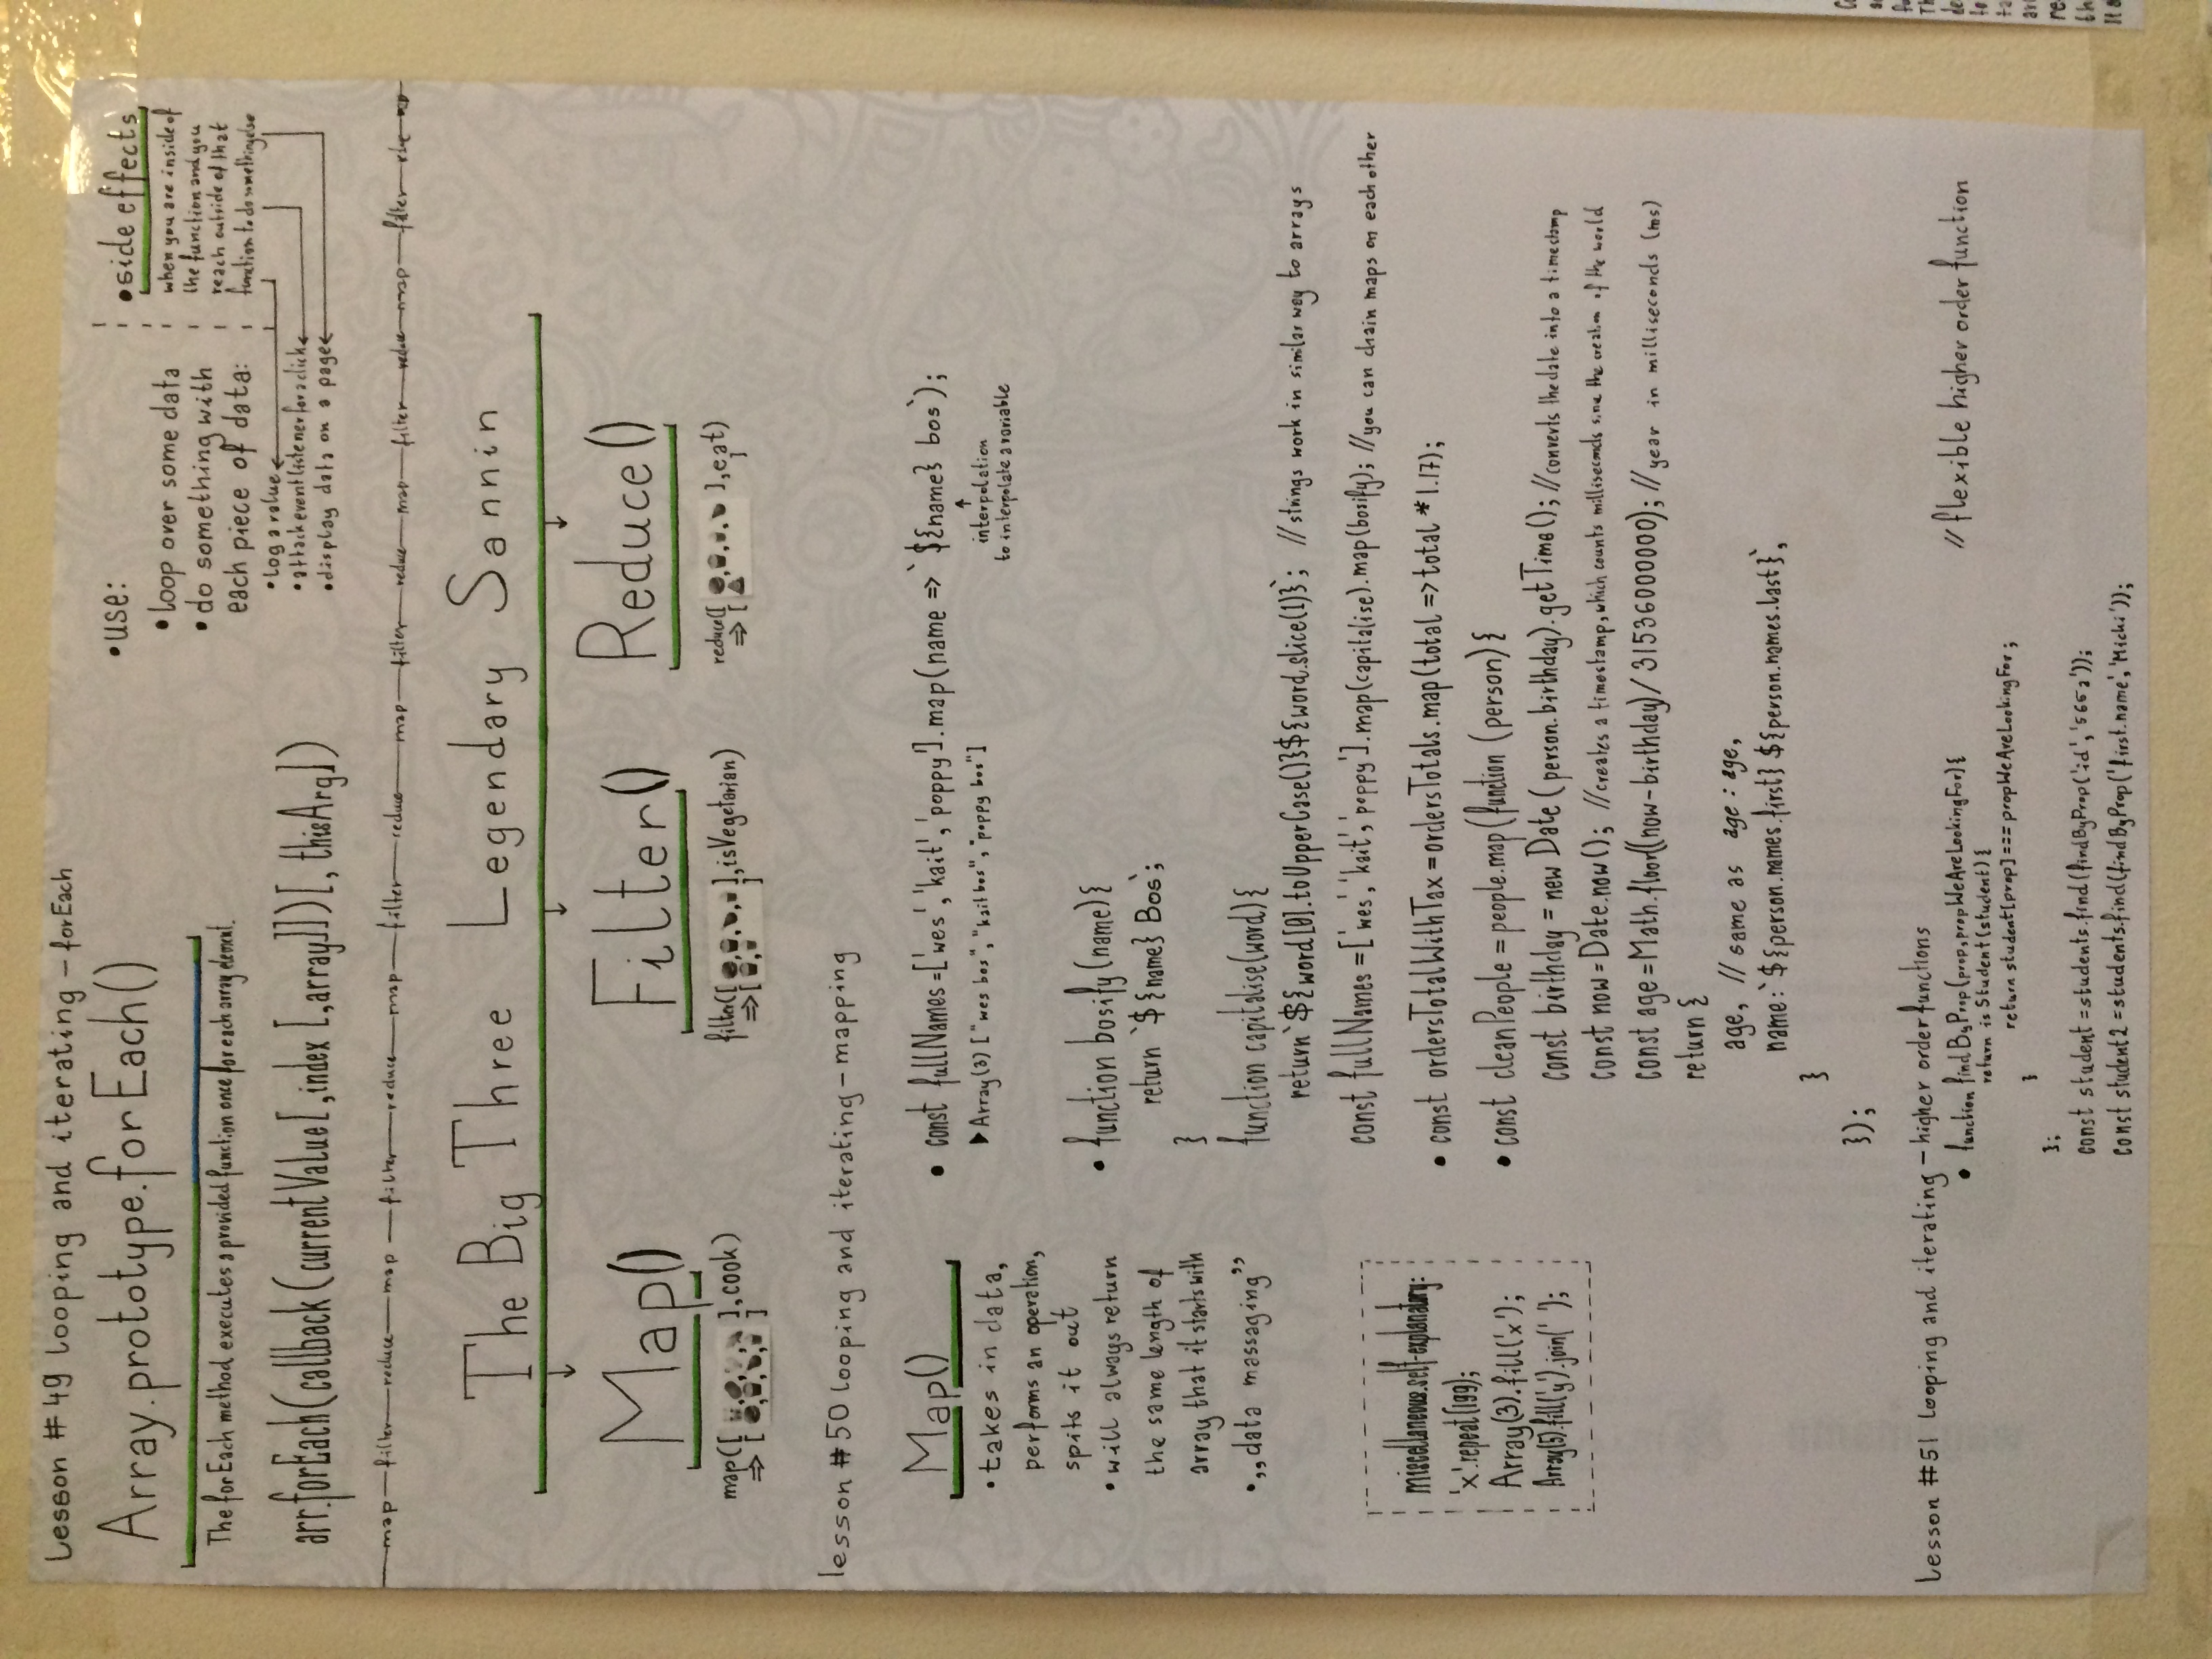 Lesson #49 looping and iterating – forEach
Array.prototype.forEach()
The forEach method executes a provided function once for each array element.
arr.forEach(callback(currentValue[,index[,array]])[, thisArg])
•use:
•loop over some data
•do something with
each piece of data:
•log a value
•attack event listener for a click
•display data on a page
•side effects
when you are inside of
the function and you
reach outside of that
function to do something else
map – filter – reduce – map – filter – reduce – map – filter – reduce – map – filter – reduce – map – filter – reduce – map – filter – rdue – map
The Big Three Legendary Sannin
Map()
map([ , , , ],cook)
⇒ [ , , , ]
Filter()
filter([ , , , ],isVegetarian)
⇒[ , ]
Reduce()
reduce([ , , , ],eat)
⇒ [ ]
lesson #50 looping and iterating – mapping
Map()
•takes in data,
performs an operation,
spits it out
•will always return
the same length of
array that it starts with
•„data massaging”
miscellaneous.self-explanatory:
'x'.repeat(199);
Array(3).fill('x');
Array(5).fill('y').join(' ');
• const fullNames=['wes','kait','poppy'].map(name => `${name} bos`);
▶Array(3) ["wes bos", "kait bos", "poppy bos"]
interpolation
to interpolate a variable
• function bosify(name){
return `${name} Bos`;
}
function capitalise(word){
return`${word[0].toUpperCase()}${word.slice(1)}`; //strings work in similar way to arrays
const fullNames=['wes','kait','poppy'].map(capitalise).map(bosify); //you can chain maps on each other
• const ordersTotalWithTax=ordersTotals.map(total => total *1.17);
• const cleanPeople = people.map(function (person){
const birthday = new Date (person.birthday).getTime(); //converts the date into a timestamp
const now=Date.now(); //creates a timestamp, which counts milliseconds sine the creation of the world
const age=Math.floor((now-birthday)/ 31536000000); //year in milliseconds (ms)
return {
age, // same as age : age,
name:`${person.names.first} ${person.names.last}`,
}
});
Lesson #51 looping and iterating – higher order functions
• function findByProp(prop,propWeAreLookingFor){
return isStudent(student){
return student[prop]===propWeAreLookingFor;
}
};
const student=students.find(findByProp('id','565a'));
const student2=students.find(findByProp('first.name','Micki'));
//flexible higher order function